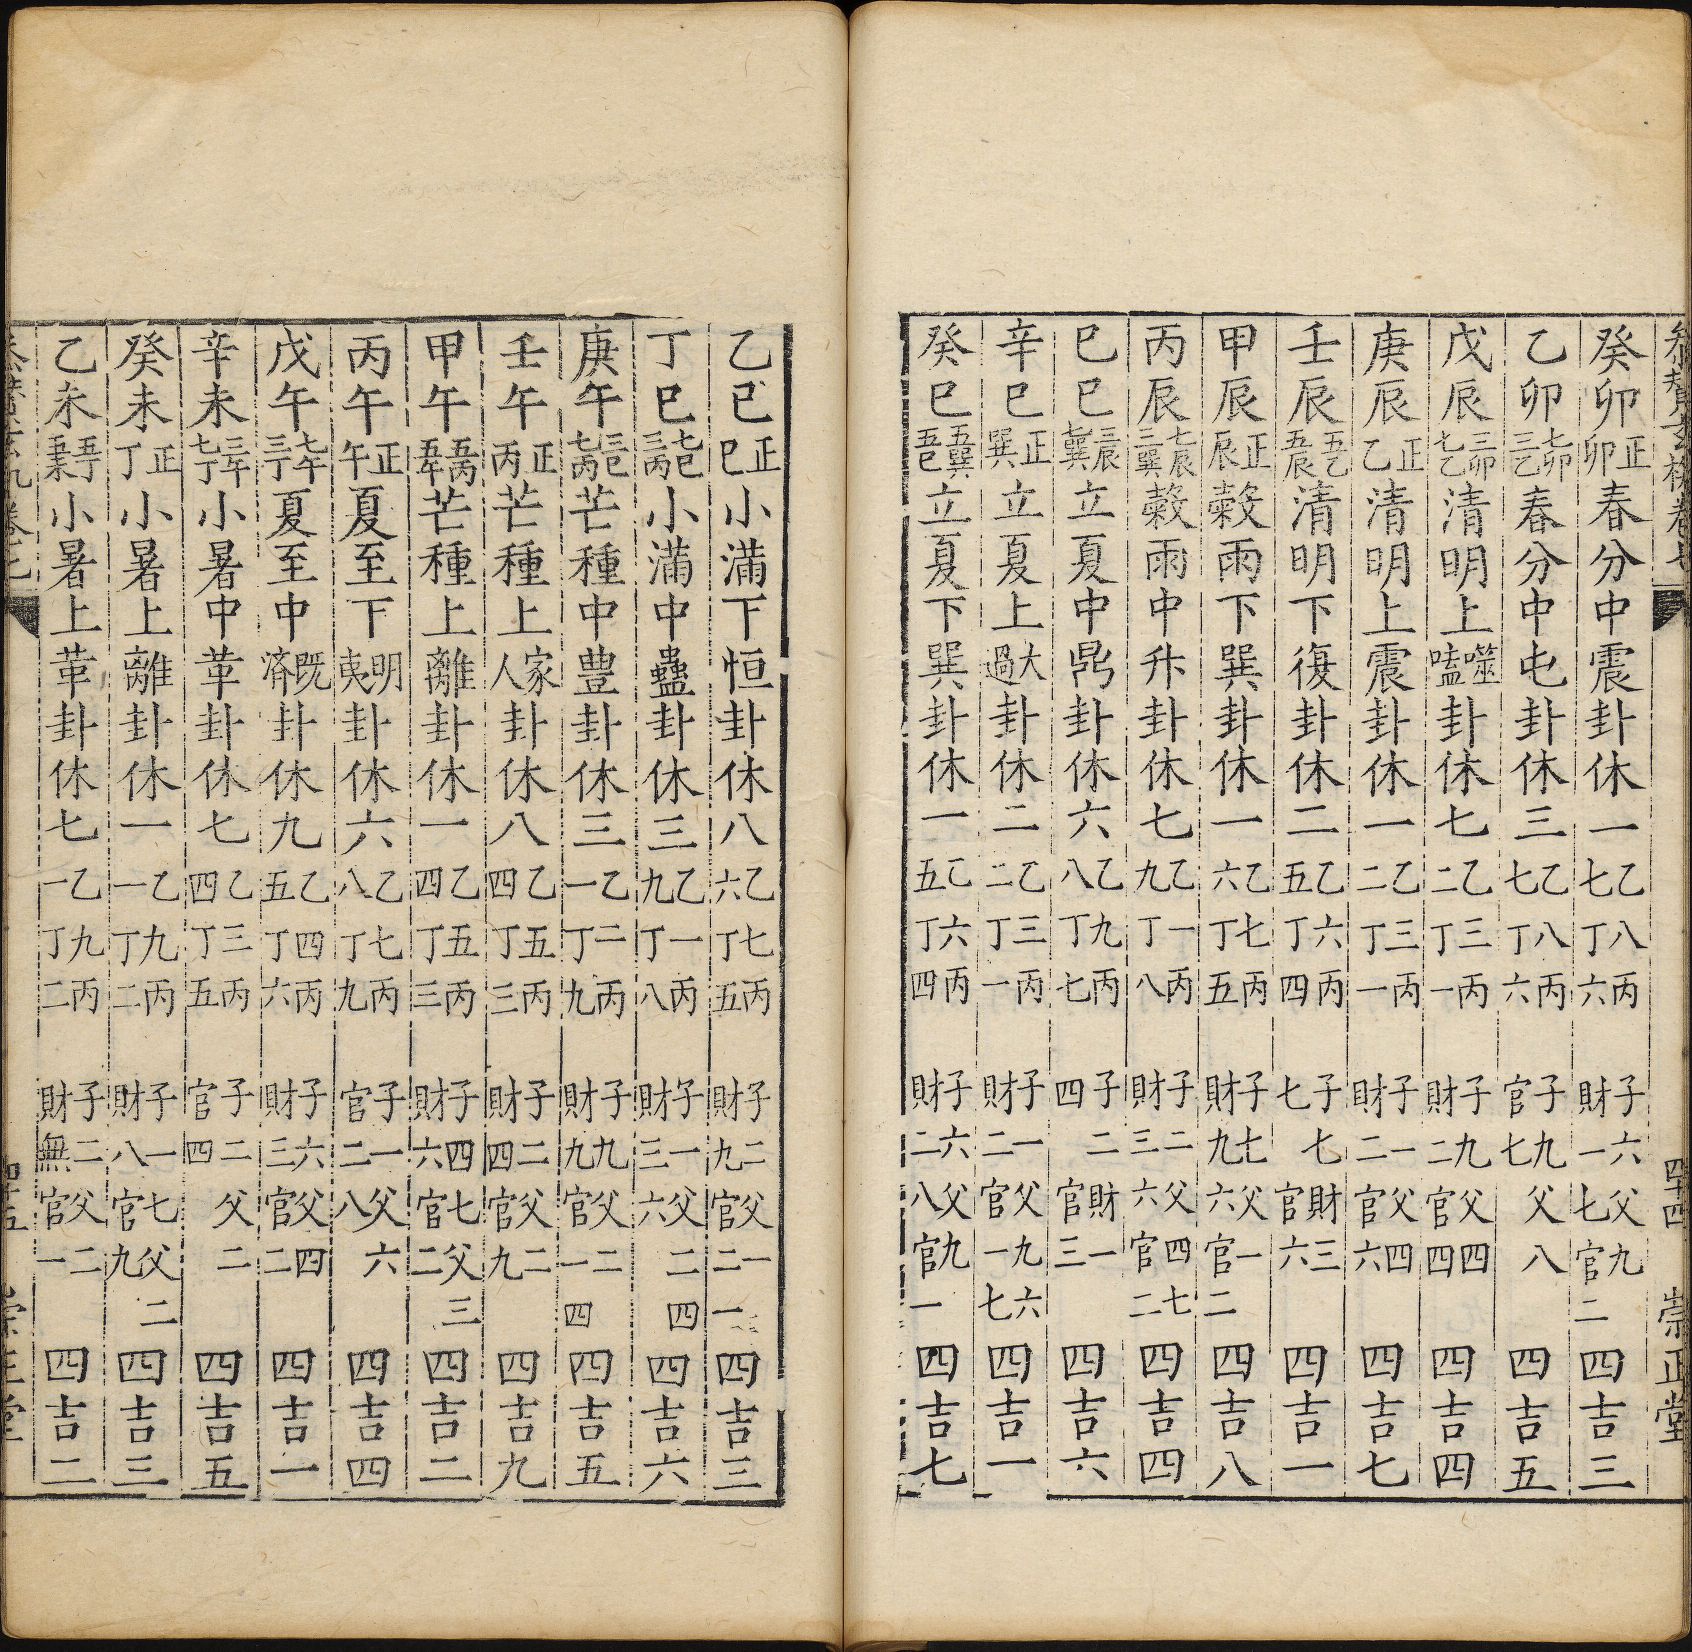 參贊玄機卷七 四十四 崇正堂
癸卯正卯春分中震卦休一乙八丙七丁六 子六父九財一七官二四吉三
乙卯七卯三乙春分中屯卦休三乙八丙七丁六 子九父八官七四吉五
戊辰三卯七乙清明上噬嗑卦休七乙三丙二丁一 子九父四財二官四四吉四
庚辰正乙清明上震卦休一乙三丙二丁一 子一父四財二官六四吉七
壬辰五乙五辰清明下復卦休二乙六丙五丁四 子七財三七官六四吉一
甲辰正辰穀雨下巽卦休一乙七丙六丁五 子七父一財九六官二四吉八
丙辰七辰三巽穀雨中升卦休七乙一丙九丁八 子二父四七財三六官二四吉四
巳巳三辰七巽立夏中鼎卦休六乙九丙八丁七 子二財一四官三四吉六
辛巳正巽立夏上大過卦休二乙三丙二丁一 子一父九六財二官一七四吉一
癸巳五巽五巳立夏下巽卦休一乙六丙五丁四 子六父九財二八官一四吉七
乙巳正巳小滿下恒卦休八乙七丙六丁五 子二父一財九官二一四吉三
丁巳七巳三丙小滿中蠱卦休三乙一丙九丁八 子一父二四財三六四吉六
庚午三巳七丙芒種中豊卦休三乙二丙一丁九 子九父二財九官一四四吉五
壬午正丙芒種上家人卦休八乙五丙四丁三 子二父二財四官九四吉九
甲午五丙五午芒種上離卦休一乙五丙四丁三 子四七父三財六官二四吉二
丙午正午夏至下明夷卦休六乙七丙八丁九 子一父六官二八四吉四
戊午七午三丁夏至中既濟卦休九乙四丙五丁六 子六父四財三官二四吉一
辛未三午七丁小暑中革卦休七乙三丙四丁五 子二父二官四四吉五
癸未正丁小暑上離卦休一乙九丙一丁二 子一七父二財八官九四吉三
乙未五丁五未小暑上革卦休七乙九丙一丁二 子二父二財無官一四吉二
參贊玄機卷七 四十五 崇正堂